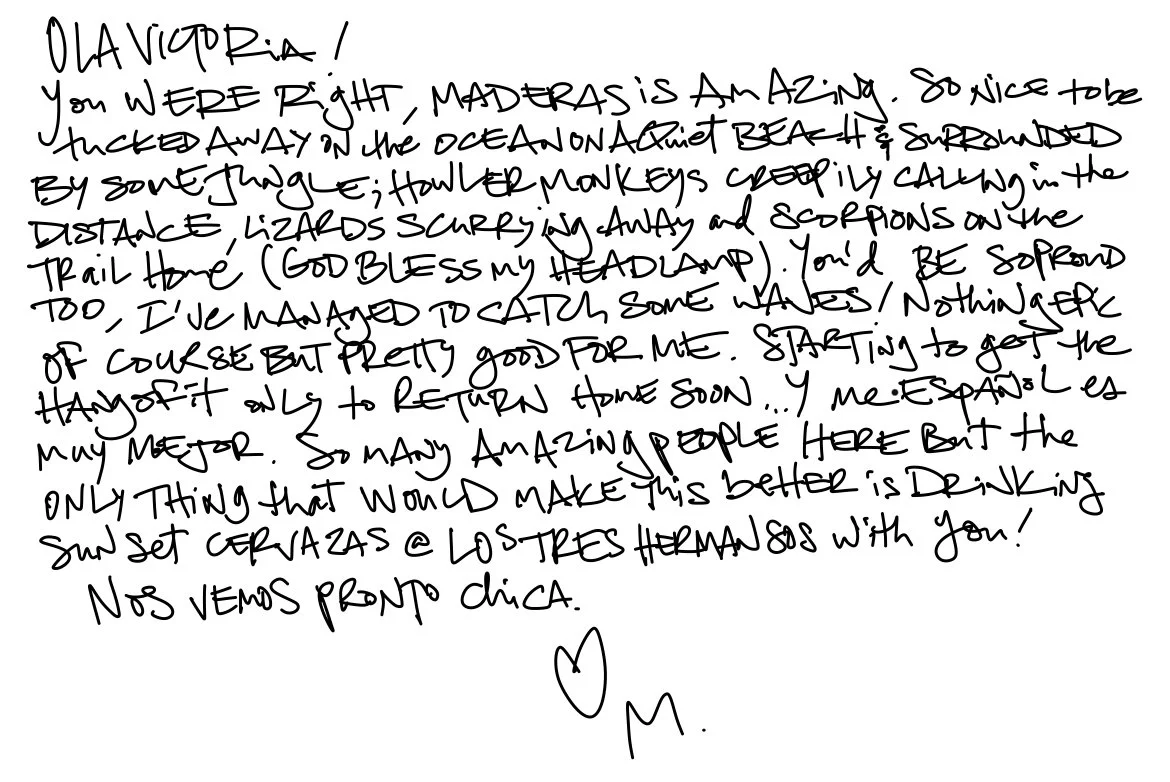 OLA VICTORIA!
You WERE RigHT, MADERAS iS AMAZing. SO NICE to be
tucked AWAY on the OCEAN ON A Quiet BEACH & SURROUNDED
BY SOME JUNGLE; HOWLER MONKEYS CREEPILY CALLING in the
DISTANCE, LIZARDS SCURRYing AWAY and SCORPIONS ON the
TRAIL HOME (GOD BLESS MY HEADLAMP). You'd BE SO PROUD
TOO, I'VE MANAGED TO CATCH SOME WAVES! NOTHING EPIC
OF COURSE BUT PRETTY good FOR ME. STARTING to get the
HANG OF IT ONLY to RETURN HOME SOON... Y ME ESPAÑOL es
muy MEJOR. So MANY AMAZing PEOPLE HERE BUT the
ONLY THING that WOULD MAKE THIS better is DRINKING
SUNSET CERVAZAS @ LOS TRES HERMANSOS with you!
NOS VEMOS PRONTO CHICA.
M.